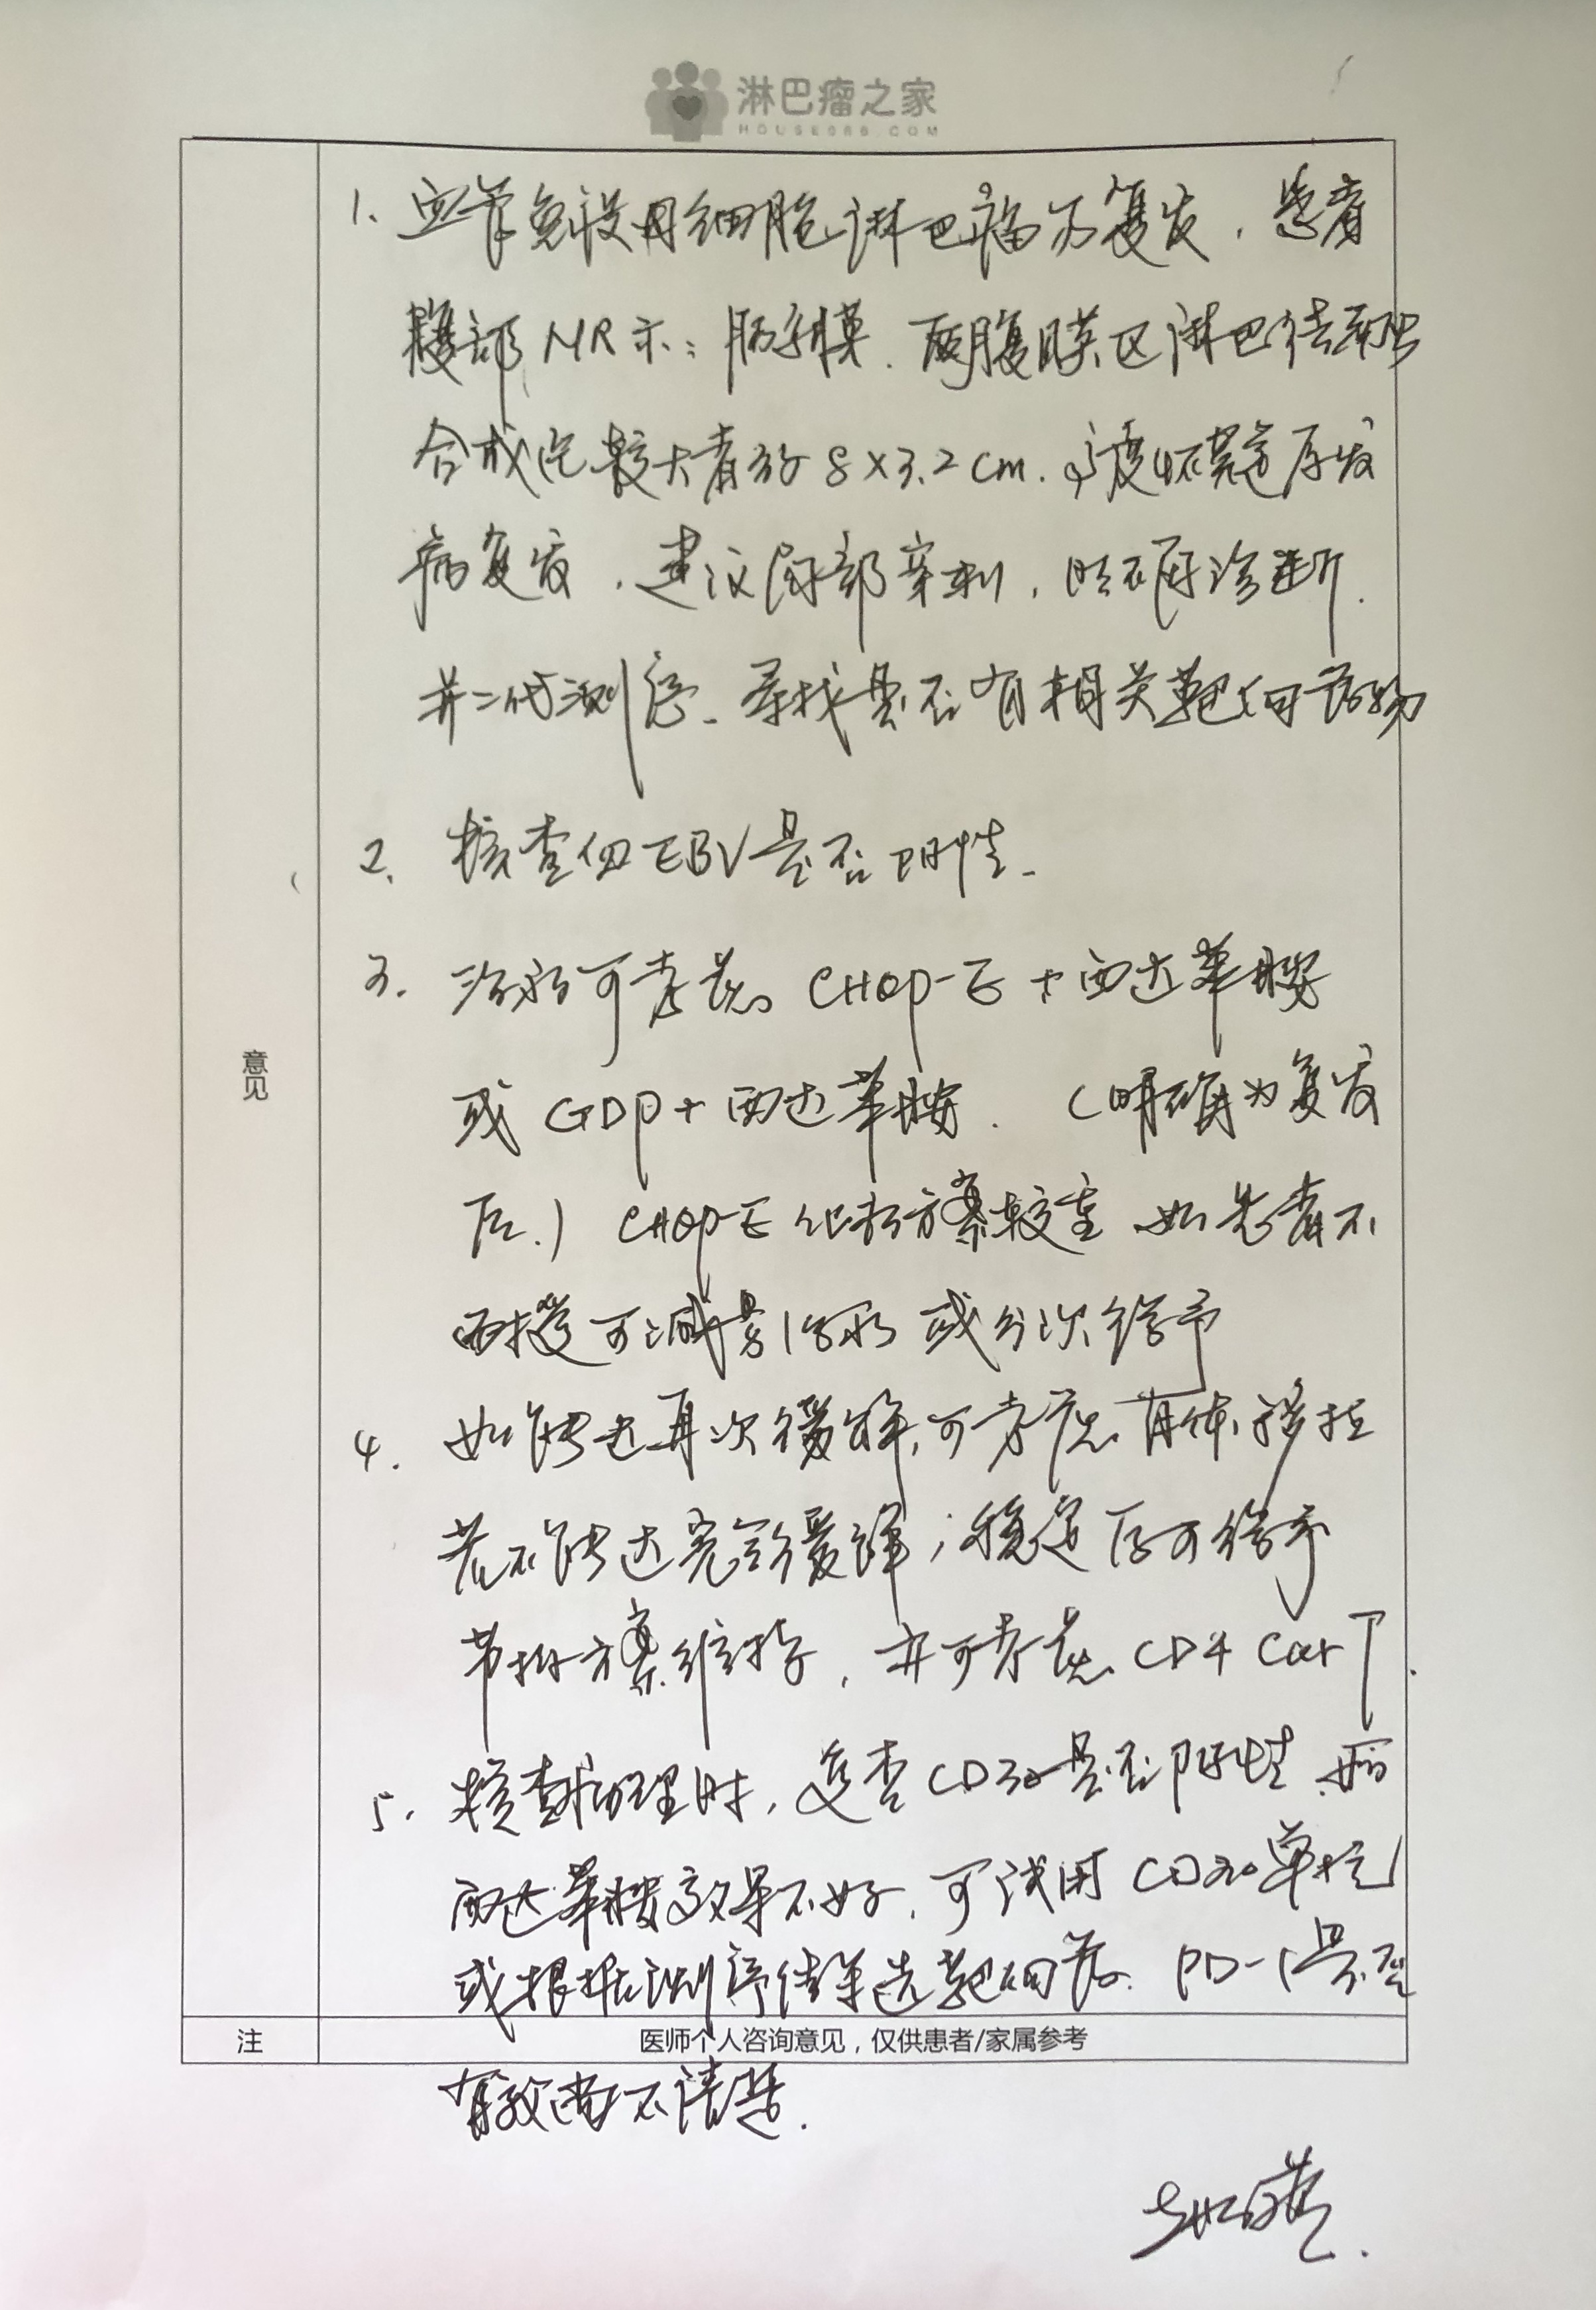 淋巴瘤之家
HOUSE086.COM
1. 血管免疫母细胞淋巴瘤为复发，患者
腹部MR示：肠系膜、后腹膜区淋巴结融
合成完较大者为8×3.2cm.高度怀疑原发
病复发，建议局部穿刺，明确诊断.
并二代测序、寻找是否有相关靶向药物
2. 核查血EBV是否阳性.
3. 治疗可考虑CHOP-E+西达苯胺
或GDP+西达苯胺. (明确为复发
后.) CHOP-E化疗方案较重 如患者不
耐受可减量治疗或分次给予
4. 如能达再次缓解，可考虑自体移植
若不能达完全缓解；稳定后可给予
节拍方案维持，亦可考虑CD4 CarT.
5. 核查病理时，复查CD30是否阳性，如
西达苯胺效果不好，可试用CD30单抗
或根据测序结果选靶向药. PD-1是否
意见
注
医师个人咨询意见，仅供患者/家属参考
有效尚不清楚.